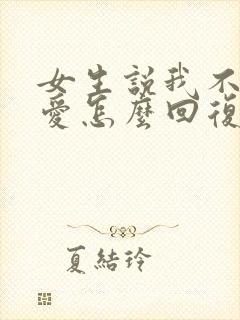 女生説我不
愛怎麼回復
夏結玲